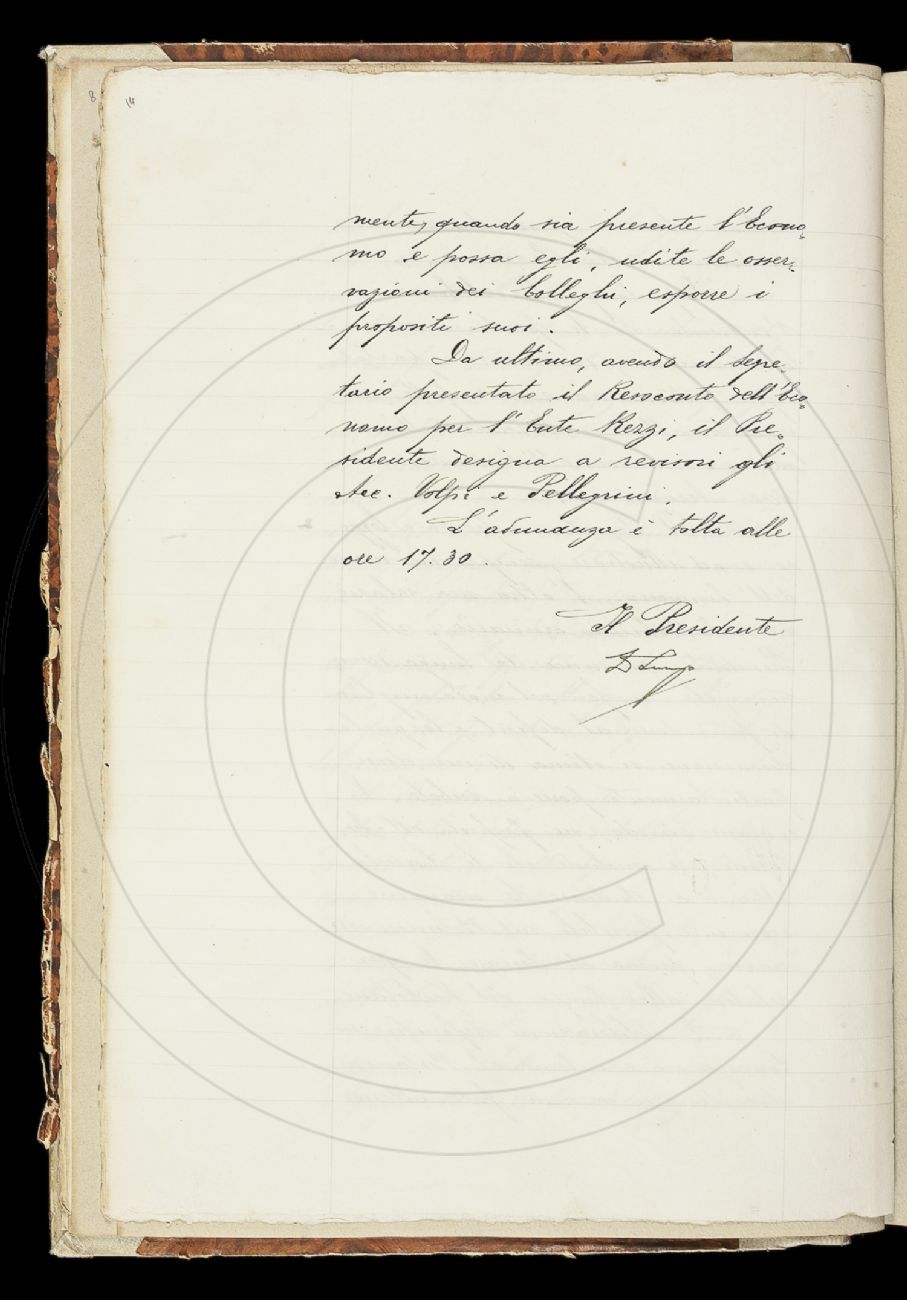 mente, quando sia presente l'Econo-
mo e possa egli, udite le osser-
vazioni dei Colleghi, esporre i
propositi suoi.
Da ultimo, avendo il Segre-
tario presentato il Resoconto dell'Eco-
nomo per l'Ente Rezzi, il Pre-
sidente designa a revisori gli
Acc. Volpi e Pellegrini.
L'adunanza è tolta alle
ore 17.30.
Il Presidente